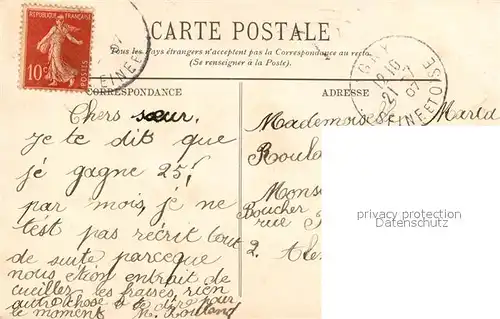 CARTE POSTALE
Tous les Pays étrangers n'acceptent pas la Correspondance au recto.
(Se renseigner à la Poste).
REPUBLIQUE FRANÇAISE
10c
POSTES
CORRESPONDANCE
ADRESSE
SEINE ET OISE
21
07
Chers sœur,
je te dit que
je gagne 25f
par mois, je ne
test pas récrit tout
de suite parceque
nous etion entrait de
cueiller les fraises, rien
autre chose à te dire pour
le moment R. Rouland
Mademoiselle Maria
Roula
Mons
Boucher
rue
2. Ale
privacy protection
Datenschutz